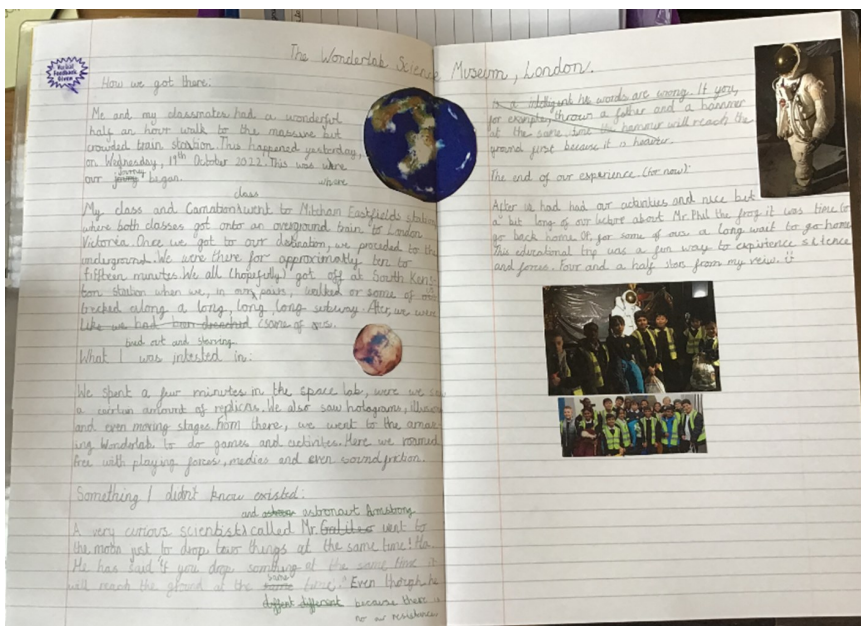 Verbal
Feedback
Given
The Wonderlab Science Museum, London.
How we got there:
Me and my classmates had a wonderful
half an hour walk to the massive but
crowded train station. This happened yesterday,
on Wednesday, 19th October 2022. This was were
where
our journey began.
class
My class and Carnation went to Mitcham Eastfields station
where both classes got onto an overground train to London
Victoria. Once we got to our distination, we proceded to the
underground. We were there for approximatly ten to
fifteen minutes. We all (hopefully) got off at South Kens-
ton station when we, in our pairs, walked or some of
trecked along a long, long, long subway. After, we were
like we had been drenched (some of us).
tired out and starving
What I was intested in:
We spent a few minutes in the space lab, were we
a certain amount of replicas. We also saw holograms,
and even moving stages. From there, we went to the amaz-
ing Wonderlab to do games and activites. Here we roamed
free with playing forces, medias and even sound friction.
Something I didn't know existed:
and astronaut Armstrong
A very curious scientists called Mr. Galileo went to
the moon just to drop two things at the same time!
He has said "if you drop something at the same time it
will reach the ground at the same time." Even though he
different because there is
no air resistance
is a intelligent his words are wrong. If you,
for example, thrown a father and a hammer
at the same time the hamour will reach the
ground first because it is heavier.
The end of our experience (for now):
After we had had our activities and nice but
a bit long of our lecture about Mr. Phil the frog it was time to
go back home. Or, for some of ous a long wait to go home.
This educational trip was a fun way to expirience sience
and forces. Four and a half stars from my reiw.